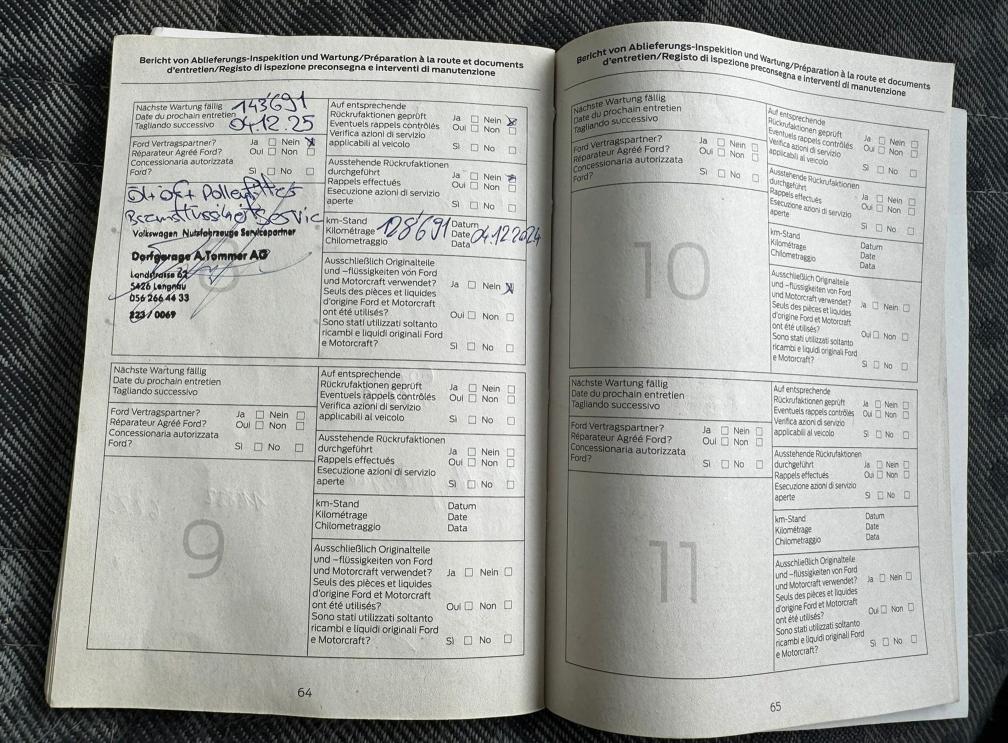 Bericht von Ablieferungs-Inspektion und Wartung/Préparation à la route et documents
d'entretien/Registo di ispezione preconsegna e interventi di manutenzione
Nächste Wartung fällig
Date du prochain entretien
Tagliando successivo
143'691
04.12.25
Ford Vertragspartner? Ja Nein
Réparateur Agréé Ford? Oui Non
Concessionaria autorizzata
Ford? Sì No
Öl + Ölf + Pollenfilter
Bremsflüssigkeit Service
Volkswagen Nutzfahrzeuge Servicepartner
Dorfgarage A.Tommer AG
Landstrasse 62
5426 Lengnau
056 266 44 33
223 / 0069
8
Auf entsprechende
Rückrufaktionen geprüft Ja Nein
Eventuels rappels contrôlés Oui Non
Verifica azioni di servizio
applicabili al veicolo Sì No
Ausstehende Rückrufaktionen
durchgeführt Ja Nein
Rappels effectués Oui Non
Esecuzione azioni di servizio
aperte Sì No
km-Stand Datum
Kilométrage 128'691 Date 04.12.2024
Chilometraggio Data
Ausschließlich Originalteile
und -flüssigkeiten von Ford
und Motorcraft verwendet? Ja Nein
Seuls des pièces et liquides
d'origine Ford et Motorcraft
ont été utilisés? Oui Non
Sono stati utilizzati soltanto
ricambi e liquidi originali Ford
e Motorcraft? Sì No
Nächste Wartung fällig
Date du prochain entretien
Tagliando successivo
Ford Vertragspartner? Ja Nein
Réparateur Agréé Ford? Oui Non
Concessionaria autorizzata
Ford? Sì No
9
Auf entsprechende
Rückrufaktionen geprüft Ja Nein
Eventuels rappels contrôlés Oui Non
Verifica azioni di servizio
applicabili al veicolo Sì No
Ausstehende Rückrufaktionen
durchgeführt Ja Nein
Rappels effectués Oui Non
Esecuzione azioni di servizio
aperte Sì No
km-Stand Datum
Kilométrage Date
Chilometraggio Data
Ausschließlich Originalteile
und -flüssigkeiten von Ford
und Motorcraft verwendet? Ja Nein
Seuls des pièces et liquides
d'origine Ford et Motorcraft
ont été utilisés? Oui Non
Sono stati utilizzati soltanto
ricambi e liquidi originali Ford
e Motorcraft? Sì No
64
Bericht von Ablieferungs-Inspektion und Wartung/Préparation à la route et documents
d'entretien/Registo di ispezione preconsegna e interventi di manutenzione
Nächste Wartung fällig
Date du prochain entretien
Tagliando successivo
Ford Vertragspartner? Ja Nein
Réparateur Agréé Ford? Oui Non
Concessionaria autorizzata
Ford? Sì No
10
Auf entsprechende
Rückrufaktionen geprüft Ja Nein
Eventuels rappels contrôlés Oui Non
Verifica azioni di servizio
applicabili al veicolo Sì No
Ausstehende Rückrufaktionen
durchgeführt Ja Nein
Rappels effectués Oui Non
Esecuzione azioni di servizio
aperte Sì No
km-Stand Datum
Kilométrage Date
Chilometraggio Data
Ausschließlich Originalteile
und -flüssigkeiten von Ford
und Motorcraft verwendet? Ja Nein
Seuls des pièces et liquides
d'origine Ford et Motorcraft
ont été utilisés? Oui Non
Sono stati utilizzati soltanto
ricambi e liquidi originali Ford
e Motorcraft? Sì No
Nächste Wartung fällig
Date du prochain entretien
Tagliando successivo
Ford Vertragspartner? Ja Nein
Réparateur Agréé Ford? Oui Non
Concessionaria autorizzata
Ford? Sì No
11
Auf entsprechende
Rückrufaktionen geprüft Ja Nein
Eventuels rappels contrôlés Oui Non
Verifica azioni di servizio
applicabili al veicolo Sì No
Ausstehende Rückrufaktionen
durchgeführt Ja Nein
Rappels effectués Oui Non
Esecuzione azioni di servizio
aperte Sì No
km-Stand Datum
Kilométrage Date
Chilometraggio Data
Ausschließlich Originalteile
und -flüssigkeiten von Ford
und Motorcraft verwendet? Ja Nein
Seuls des pièces et liquides
d'origine Ford et Motorcraft
ont été utilisés? Oui Non
Sono stati utilizzati soltanto
ricambi e liquidi originali Ford
e Motorcraft? Sì No
65